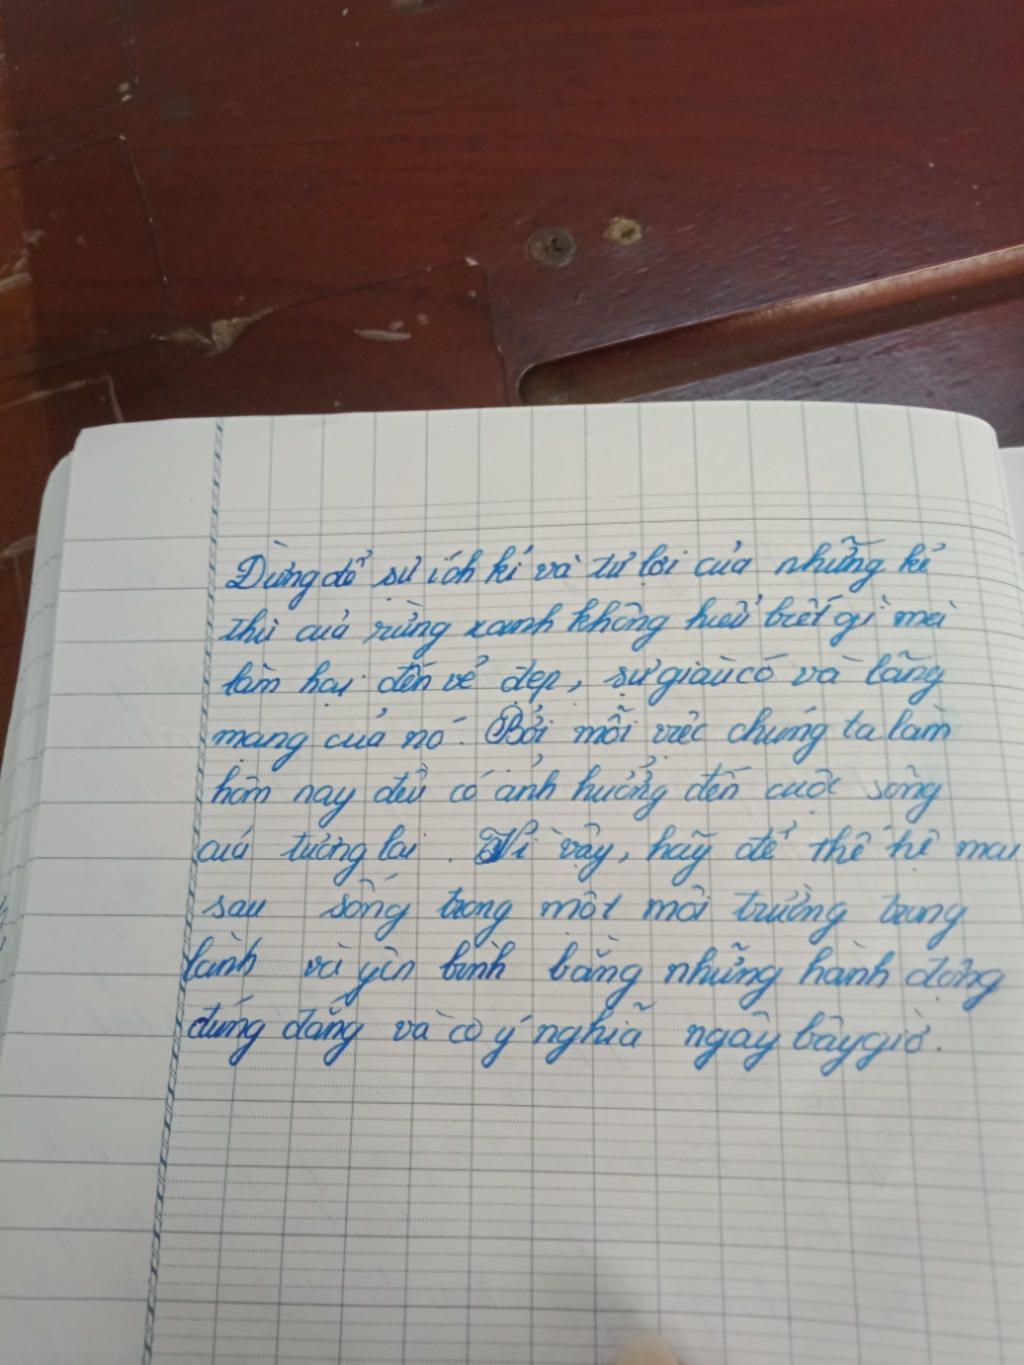 Đừng để sự ích kỉ và tư lợi của những kẻ
thù của rừng xanh không hiểu biết gì mà
làm hại đến vẻ đẹp, sự giàu có và lãng
mạng của nó. Bởi mỗi việc chúng ta làm
hôm nay đều có ảnh hưởng đến cuộc sống
của tương lai. Vì vậy, hãy để thế hệ mai
sau sống trong một môi trường trong
lành và yên bình bằng những hành động
đúng đắng và có ý nghĩa ngây bây giờ.